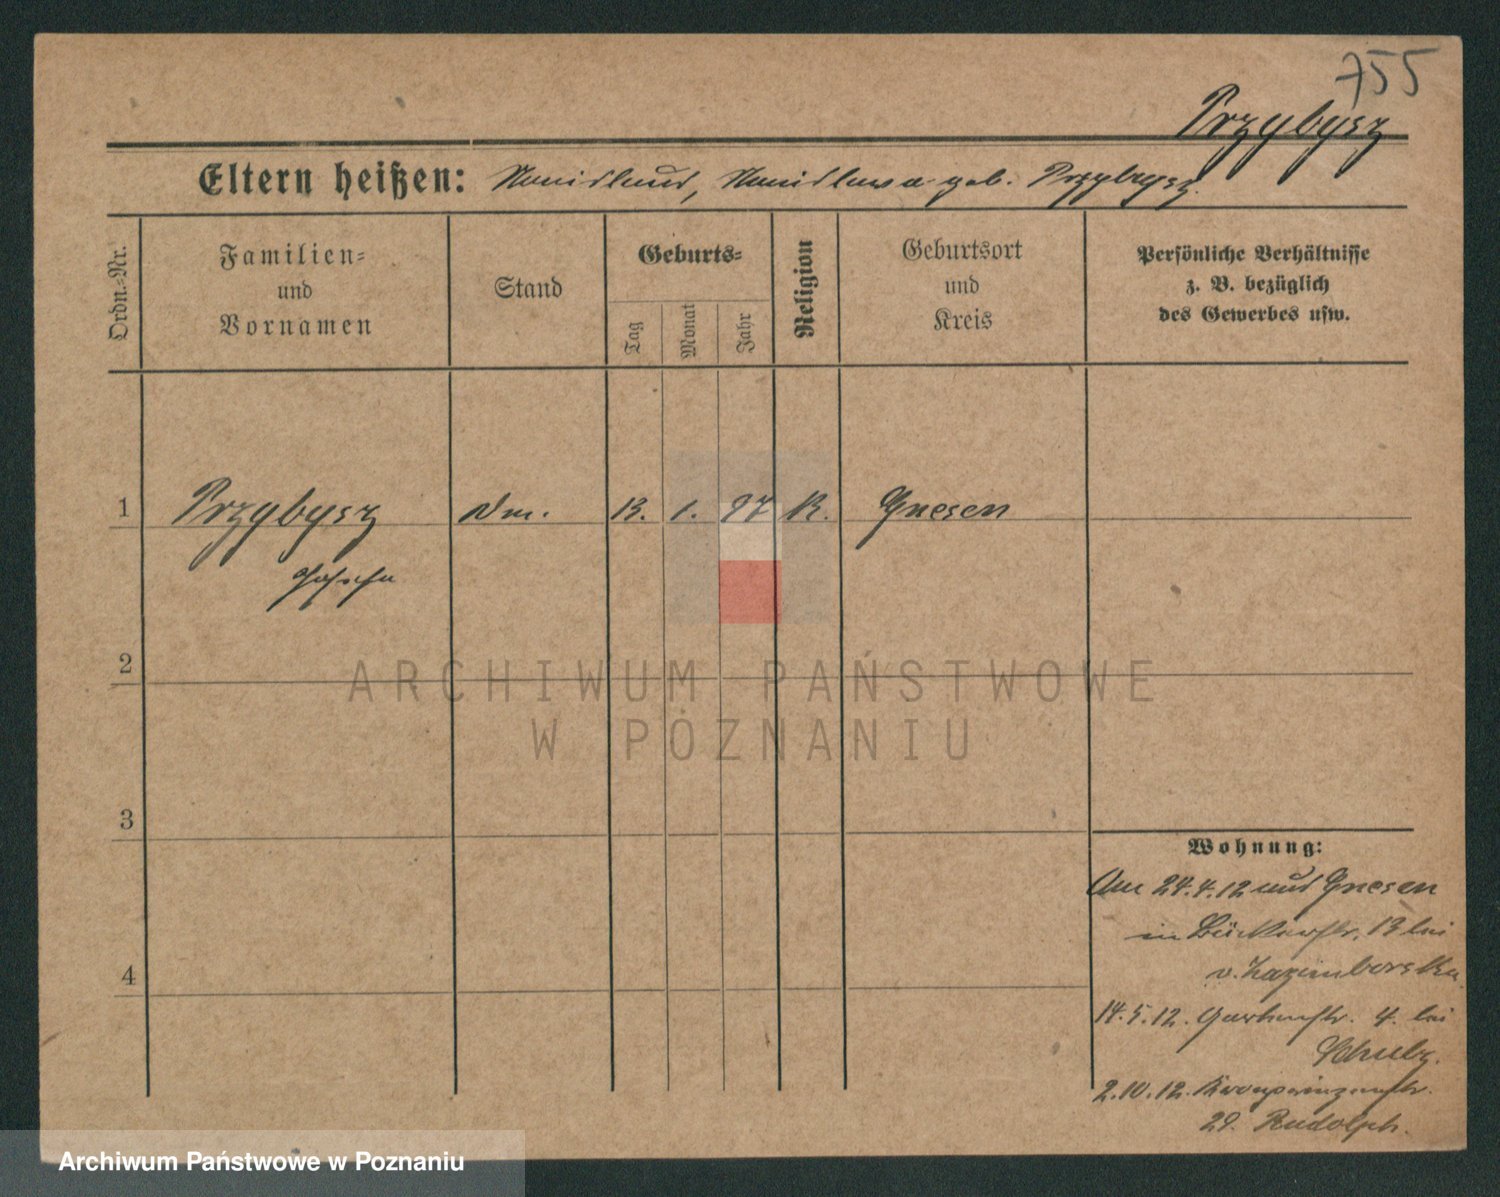 755
Przybysz
Eltern heißen: Stanislaus, Stanislawa geb. Przybysz.
Ordn.=Nr.
Familien= und Vornamen
Stand
Geburts=
Tag
Monat
Jahr
Religion
Geburtsort und Kreis
Persönliche Verhältnisse
z. B. bezüglich
des Gewerbes usw.
1 Przybysz 13. 1. 97 K. Gnesen
2
ARCHIWUM PAŃSTWOWE
W POZNANIU
3
4
Wohnung:
Am 24.4.12 aus Gnesen
in Bäckerstr. 13 bei
v.
14.5.12. Gartenstr. 4. bei
Schulz.
2.10.12. Kronprinzenstr.
29. Rudolph.
Archiwum Państwowe w Poznaniu